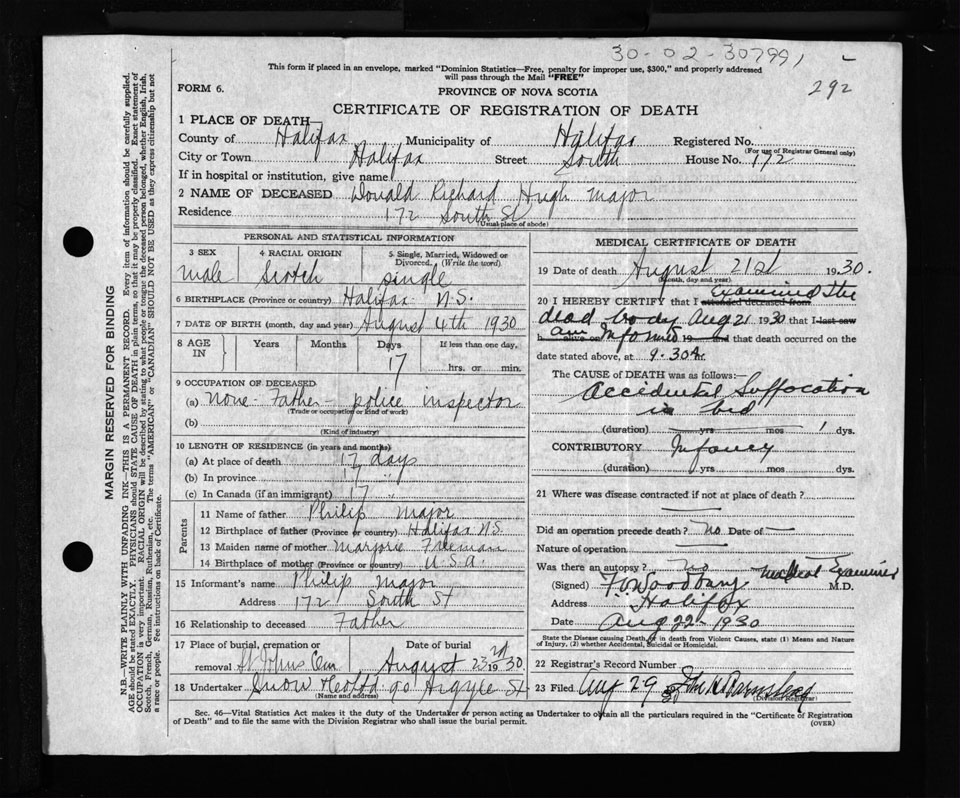 30-02-307991
292
This form if placed in an envelope, marked "Dominion Statistics—Free, penalty for improper use, $300," and properly addressed
will pass through the Mail "FREE"
FORM 6.
PROVINCE OF NOVA SCOTIA
CERTIFICATE OF REGISTRATION OF DEATH
1 PLACE OF DEATH
County of Halifax Municipality of Halifax Registered No.
(For use of Registrar General only)
City or Town Halifax Street South House No. 172
If in hospital or institution, give name
2 NAME OF DECEASED Donald Richard Hugh Major
Residence 172 South St
(Usual place of abode)
PERSONAL AND STATISTICAL INFORMATION
3 SEX 4 RACIAL ORIGIN 5 Single, Married, Widowed or
Divorced. (Write the word).
male Scotch single
6 BIRTHPLACE (Province or country) Halifax N.S.
7 DATE OF BIRTH (month, day and year) August 4th 1930
8 AGE IN Years Months Days If less than one day,
17 hrs. or min.
9 OCCUPATION OF DECEASED
(a) None - Father - police inspector
(Trade or occupation or kind of work)
(b)
(Kind of industry)
10 LENGTH OF RESIDENCE (in years and months)
(a) At place of death 17 days
(b) In province 17 "
(c) In Canada (if an immigrant) 17 "
Parents
11 Name of father Philip Major
12 Birthplace of father (Province or country) Halifax N.S.
13 Maiden name of mother Marjorie Freeman
14 Birthplace of mother (Province or country) U.S.A.
15 Informant's name Philip Major
Address 172 South St
16 Relationship to deceased Father
17 Place of burial, cremation or Date of burial
removal St Johns Cem August 23rd 1930
18 Undertaker Snow 90 Argyle St
(Name and address)
MEDICAL CERTIFICATE OF DEATH
19 Date of death August 21st 1930.
(Month, day and year)
20 I HEREBY CERTIFY that I attended deceased from examined the
dead body Aug 21 1930 that I last saw
h alive on am Informed 19 and that death occurred on the
date stated above, at 9.30 A.
The CAUSE OF DEATH was as follows:
Accidental Suffocation
in bed
(duration) yrs mos 1 dys.
CONTRIBUTORY Infancy
(duration) yrs mos dys.
21 Where was disease contracted if not at place of death?
Did an operation precede death? no Date of
Nature of operation
Was there an autopsy? no Medical Examiner
(Signed) Woodbury M.D.
Address Halifax
Date Aug 22 - 1930
State the Disease causing Death, or in death from Violent Causes, state (1) Means and Nature
of Injury, (2) whether Accidental, Suicidal or Homicidal.
22 Registrar's Record Number
23 Filed Aug 29 30
(Division Registrar)
Sec. 46—Vital Statistics Act makes it the duty of the Undertaker or person acting as Undertaker to obtain all the particulars required in the "Certificate of Registration
of Death" and to file the same with the Division Registrar who shall issue the burial permit. (OVER)
MARGIN RESERVED FOR BINDING
N.B.—WRITE PLAINLY WITH UNFADING INK—THIS IS A PERMANENT RECORD. Every item of information should be carefully supplied.
AGE should be stated EXACTLY. PHYSICIANS should STATE CAUSE OF DEATH in plain terms, so that it may be properly classified. Exact statement of
OCCUPATION is very important. RACIAL ORIGIN will be described by stating to what people or tongue the deceased person belonged, whether English, Irish,
Scotch, French, German, Russian, Ruthenian, etc. The terms "AMERICAN" or "CANADIAN" SHOULD NOT BE USED as they express citizenship but not
a race or people. Fee instructions on back of Certificate.